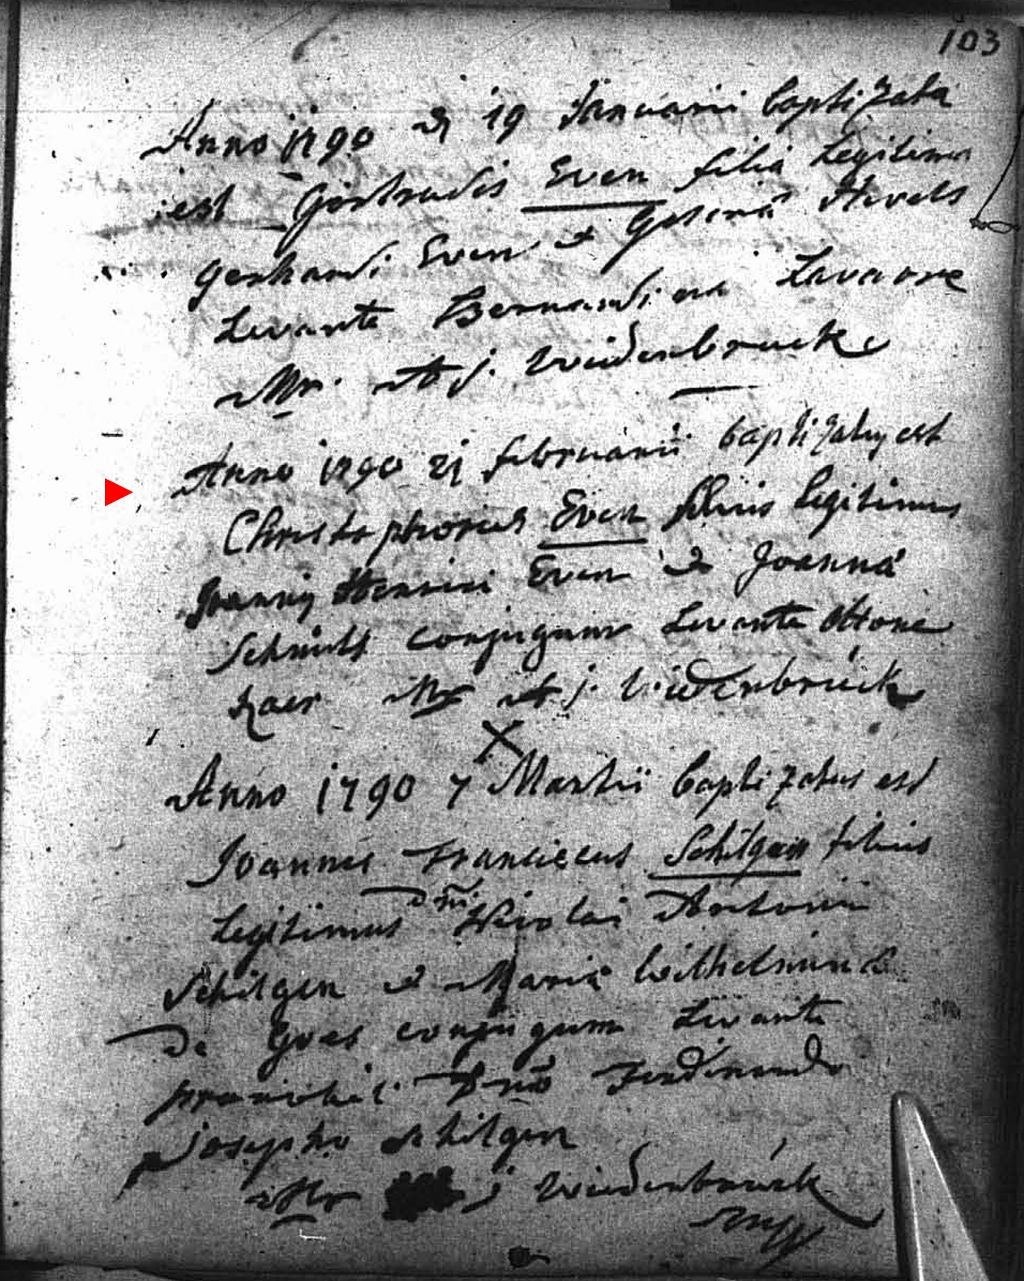 103
Anno 1790 19 Januarii baptizata
est Gertrudis Even filia legitima
gerhardi Even et Gesinā Hevels
Levante Bernardi Lavaore
Mr. A j. Widenbruck
Anno 1790 21 februarii baptizatus est
Christophorus Even filius legitimus
Joannis Henrici Even et Joannā
Schmitt conjugum Levante Ottone
Mr A j. Widenbrück
Anno 1790 7 Martii baptizatus est
Joannes Franciscus Schilgen filius
legitimus dni Nicolai Antonii
Schilgen et Mariā Wilhelmina
De Goes conjugum Levante
Dno Ferdinando
Josepho schilgen
Mr j Widenbrück